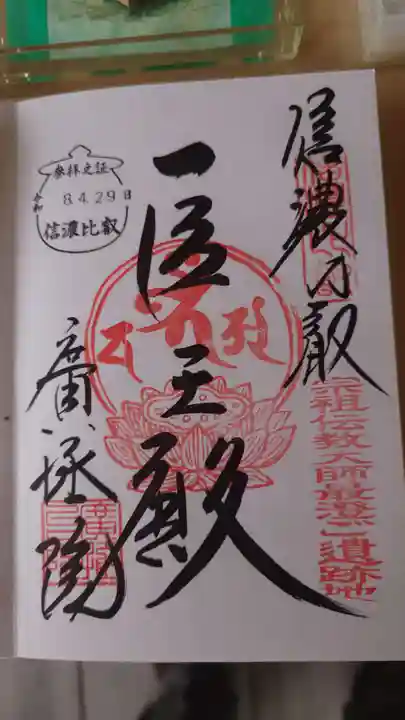 信濃比叡
宗祖伝教大師最澄「遺跡地
医王殿
参拝之証
令和 8.4.29日
信濃比叡
廣拯院